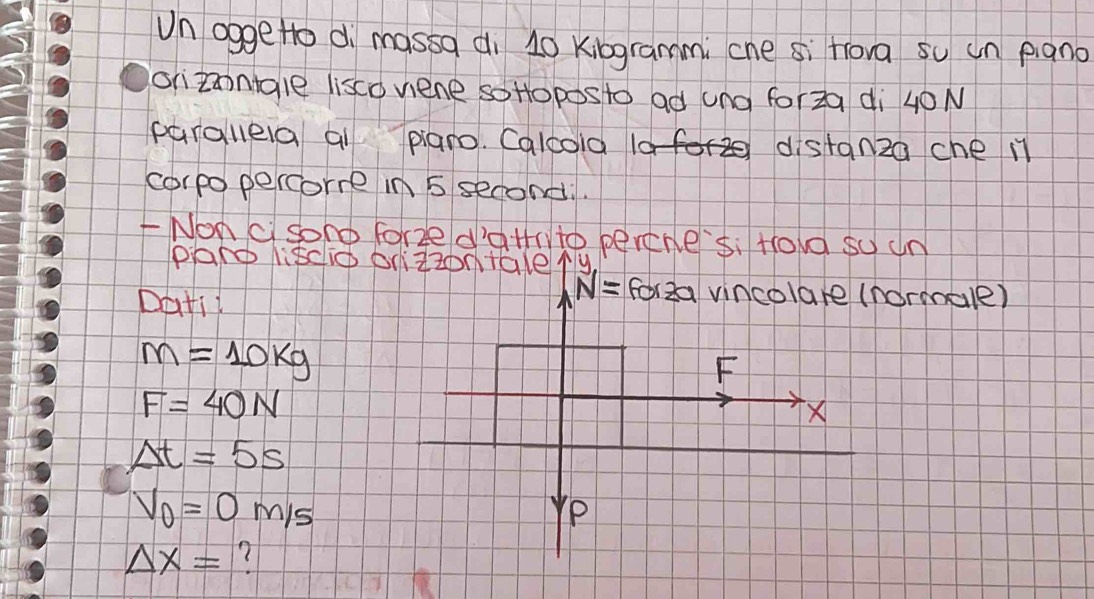 Un oggetto di massa di 10 Kilogrammi che si trova su un piano
orizzontale lisco viene sottoposto ad una forza di 40N
parallela al piano. Calcola la forza distanza che il
corpo percorre in 5 secondi.
- Non ci sono forze d'attrito perche' si trova su un
piano liscio orizzontale
y
N = forza vincolare (normale)
Dati:
m = 10 Kg
F
F = 40 N
x
Δt = 5s
V₀ = 0 m/s
P
Δx = ?